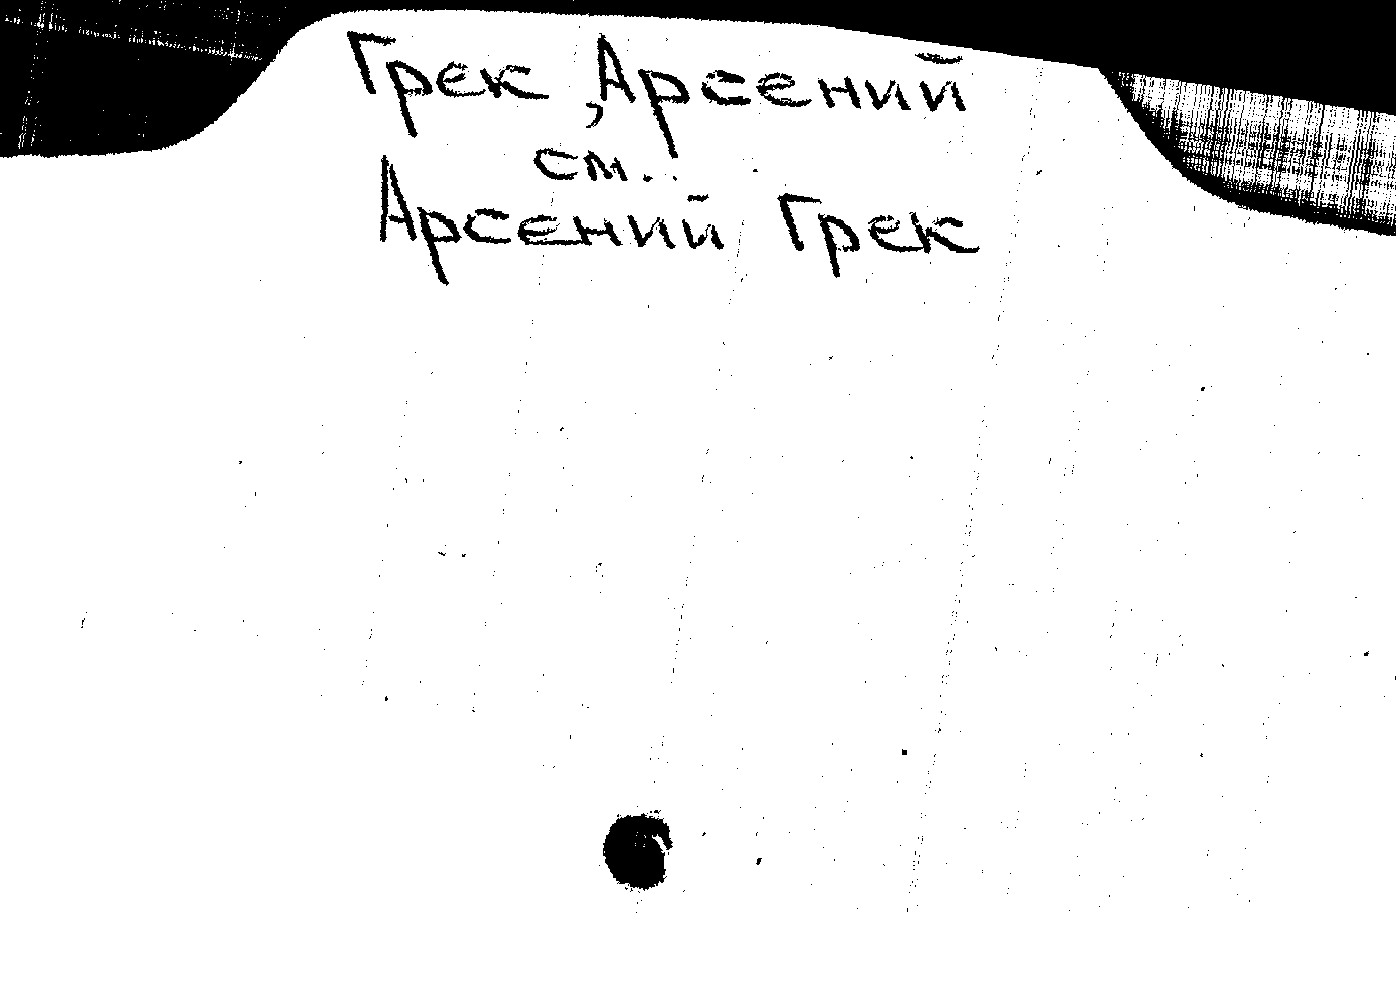 Грек, Арсений
см.
Арсений Грек